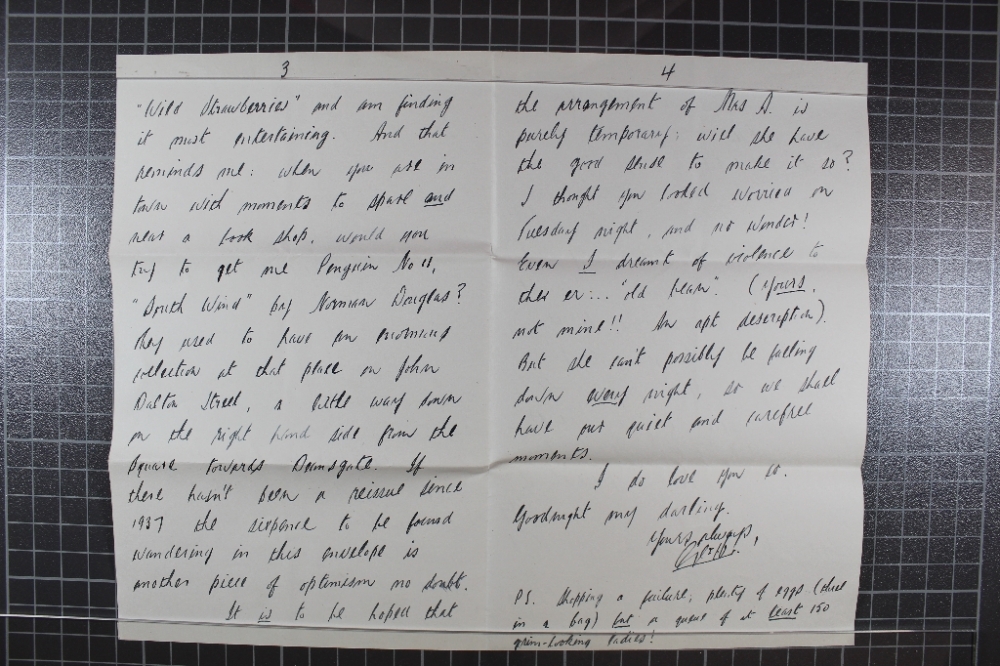 3
"Wild Strawberries" and am finding
it most entertaining. And that
reminds me: when you are in
town with moments to spare and
near a book shop, would you
try to get me Penguin No 11,
"South Wind" by Norman Douglas?
They used to have an enormous
collection at that place on John
Dalton Street, a little way down
on the right hand side from the
Square towards Deansgate. If
there hasn't been a reissue since
1937 the sixpence to be found
wandering in this envelope is
another piece of optimism no doubt.
It is to be hoped that
4
the arrangement of Mrs D. is
purely temporary; will she have
the good sense to make it so?
I thought you looked worried on
Tuesday night, and no wonder!
Even I dreamt of violence to
this er:.. "old bean". (Yours,
not mine!! An apt description).
But she can't possibly be falling
down every night, so we shall
have our quiet and carefree
moments.
I do love you so.
Goodnight my darling.
Yours always,
P.S. Shopping a failure; plenty of eggs (three
in a bag) but a queue of at least 150
grim-looking ladies!